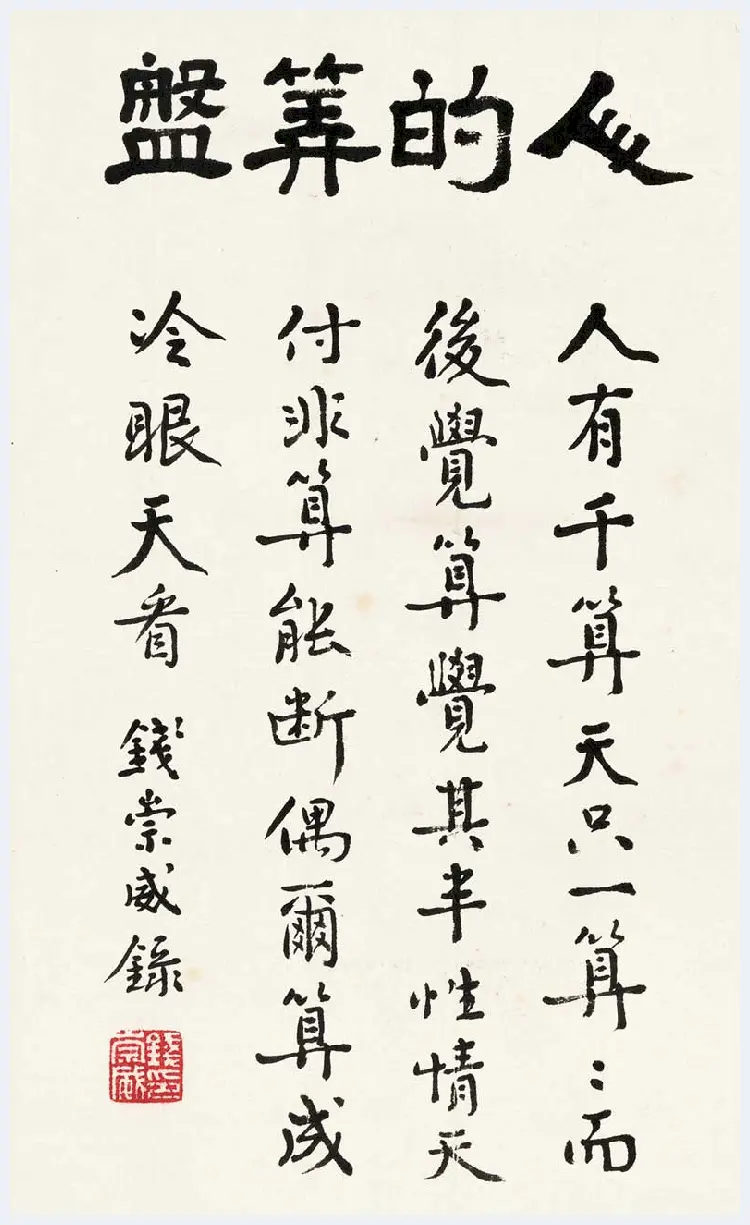 人的筭盤
人有千算天只一算〻而
後覺算覺其半性情天
付非算能断偶爾算成
冷眼天看 錢崇威錄
錢印崇威